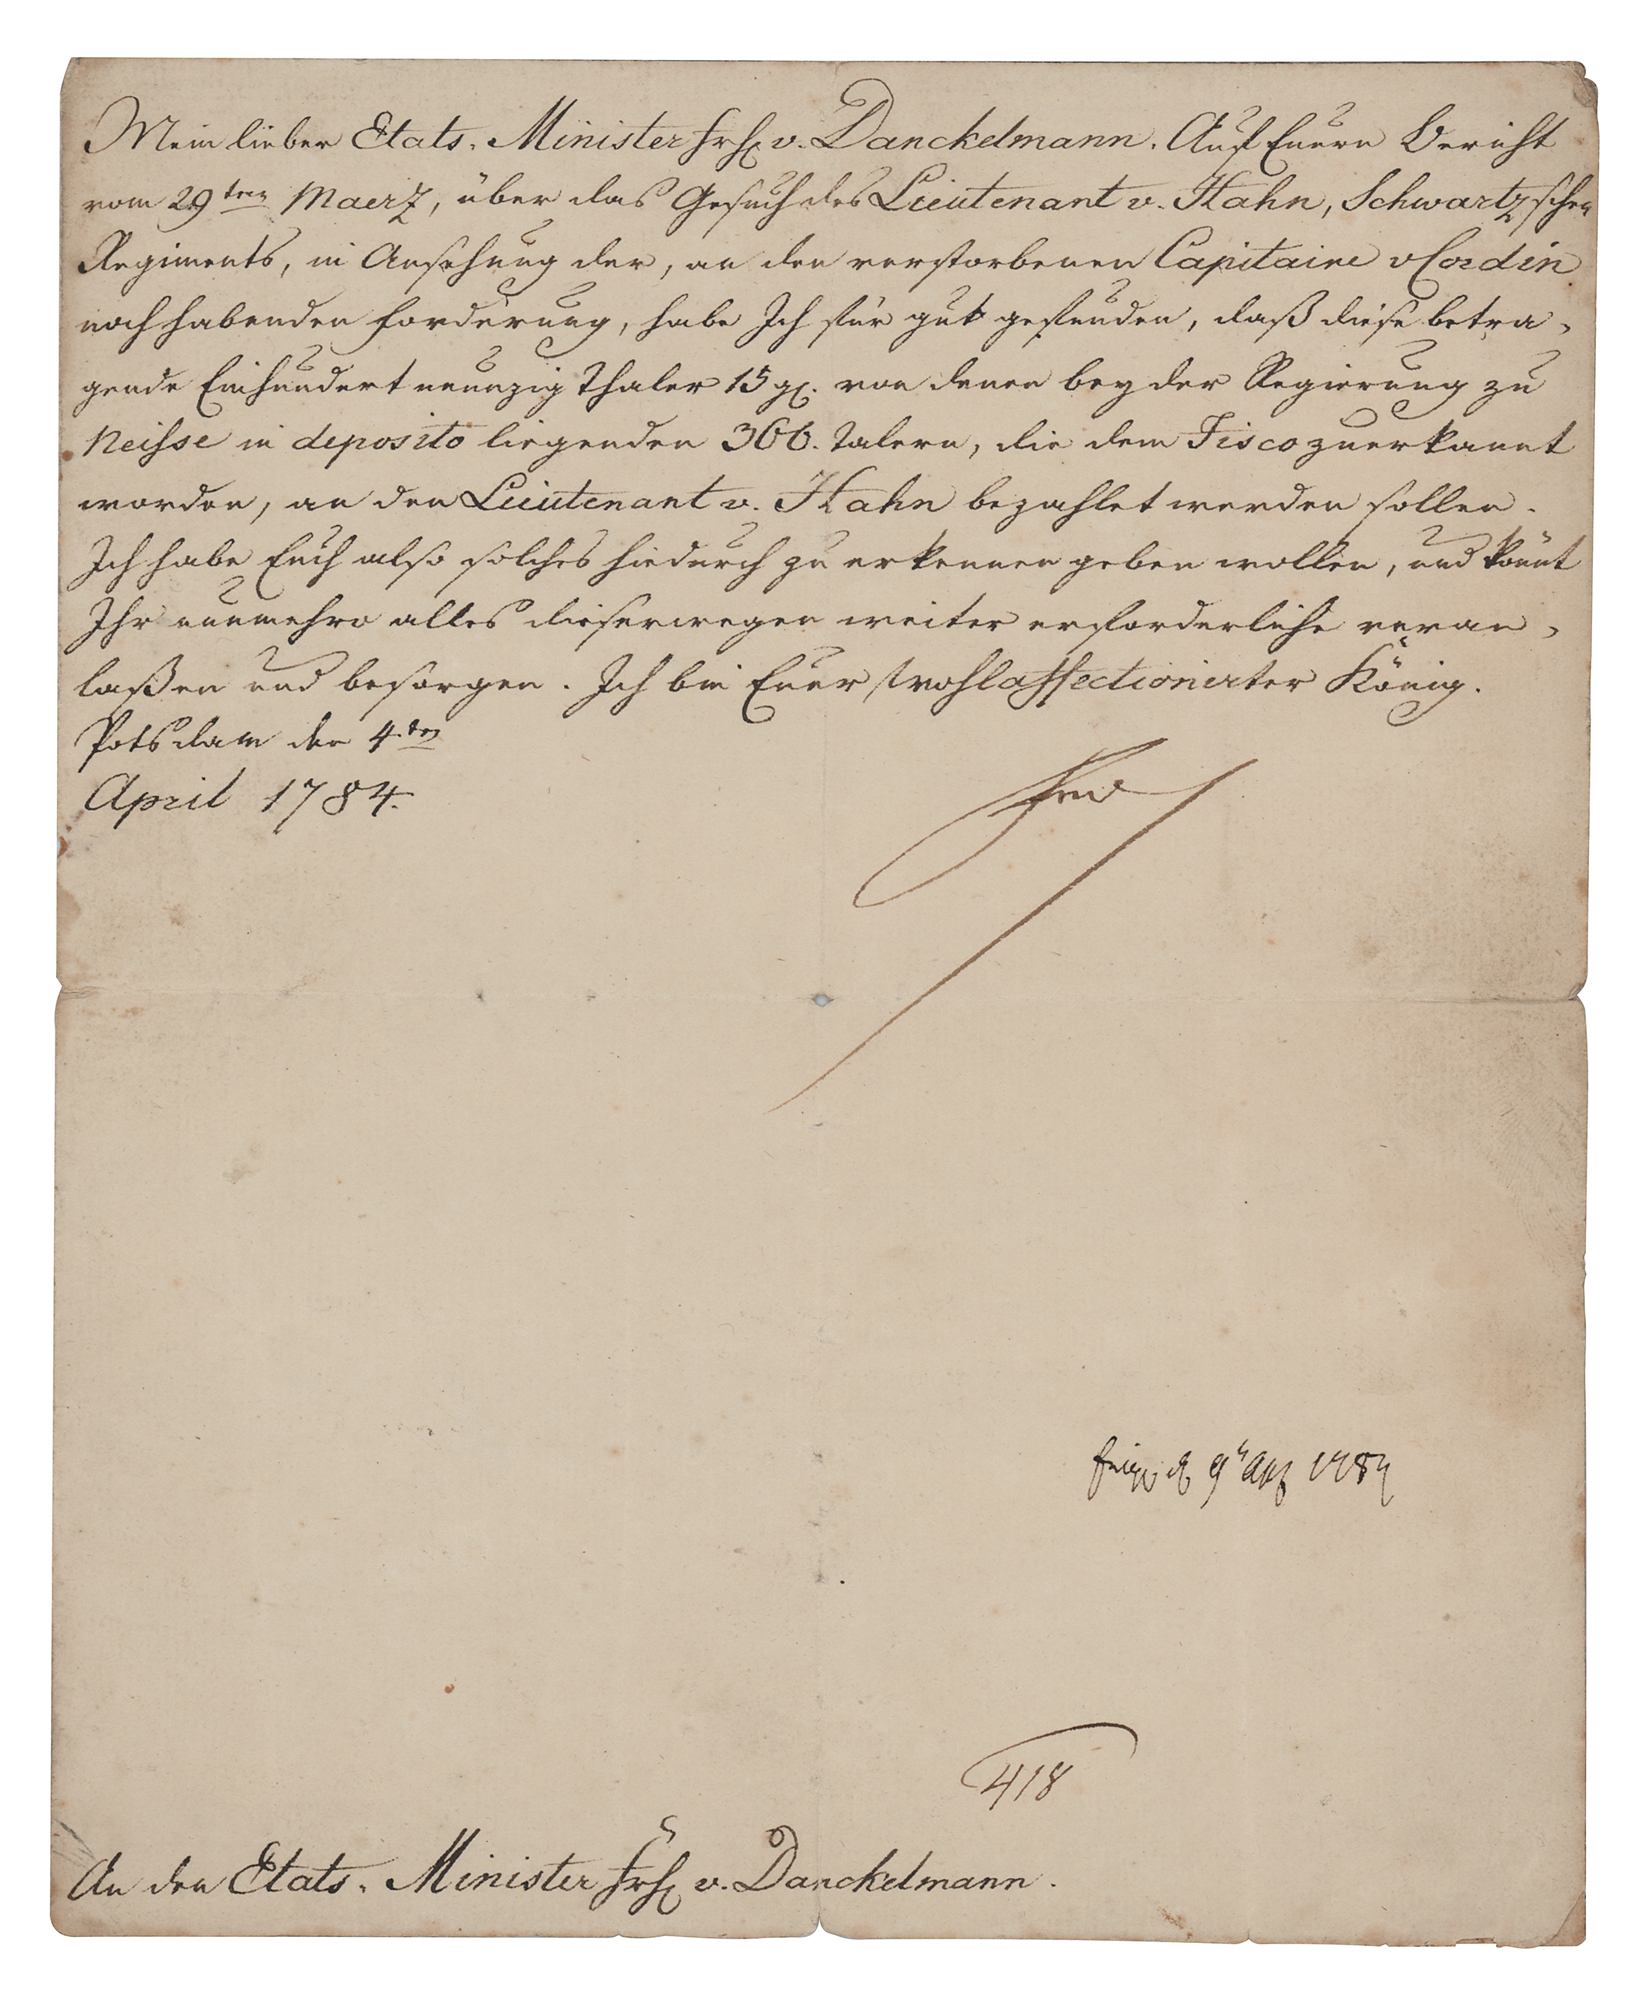 Mein lieber Etats-Minister Frhr v. Danckelmann. Auf Euern Bericht
vom 29ten Maerz, über das Gesuch des Lieutenant v. Hahn, Schwartzschen
Regiments, in Ansehung der, an den verstorbenen Capitaine v Cordin
noch habenden Forderung, habe Ich für gut gefunden, daß diese betra-
gende Einhundert neunzig Thaler 15 gr. von denen bey der Regierung zu
Neisse in deposito liegenden 366. Talern, die dem Fisco zuerkannt
worden, an den Lieutenant v. Hahn bezahlet werden sollen.
Ich habe Euch also solches hiedurch zu erkennen geben wollen, und könnt
Ihr nunmehro alles dieserwegen weiter erforderliche veran-
laßen und besorgen. Ich bin Euer wohlaffectionirter König.
Potsdam den 4.ten
April 1784.
9 1784
418
An den Etats-Minister Frhr v. Danckelmann.